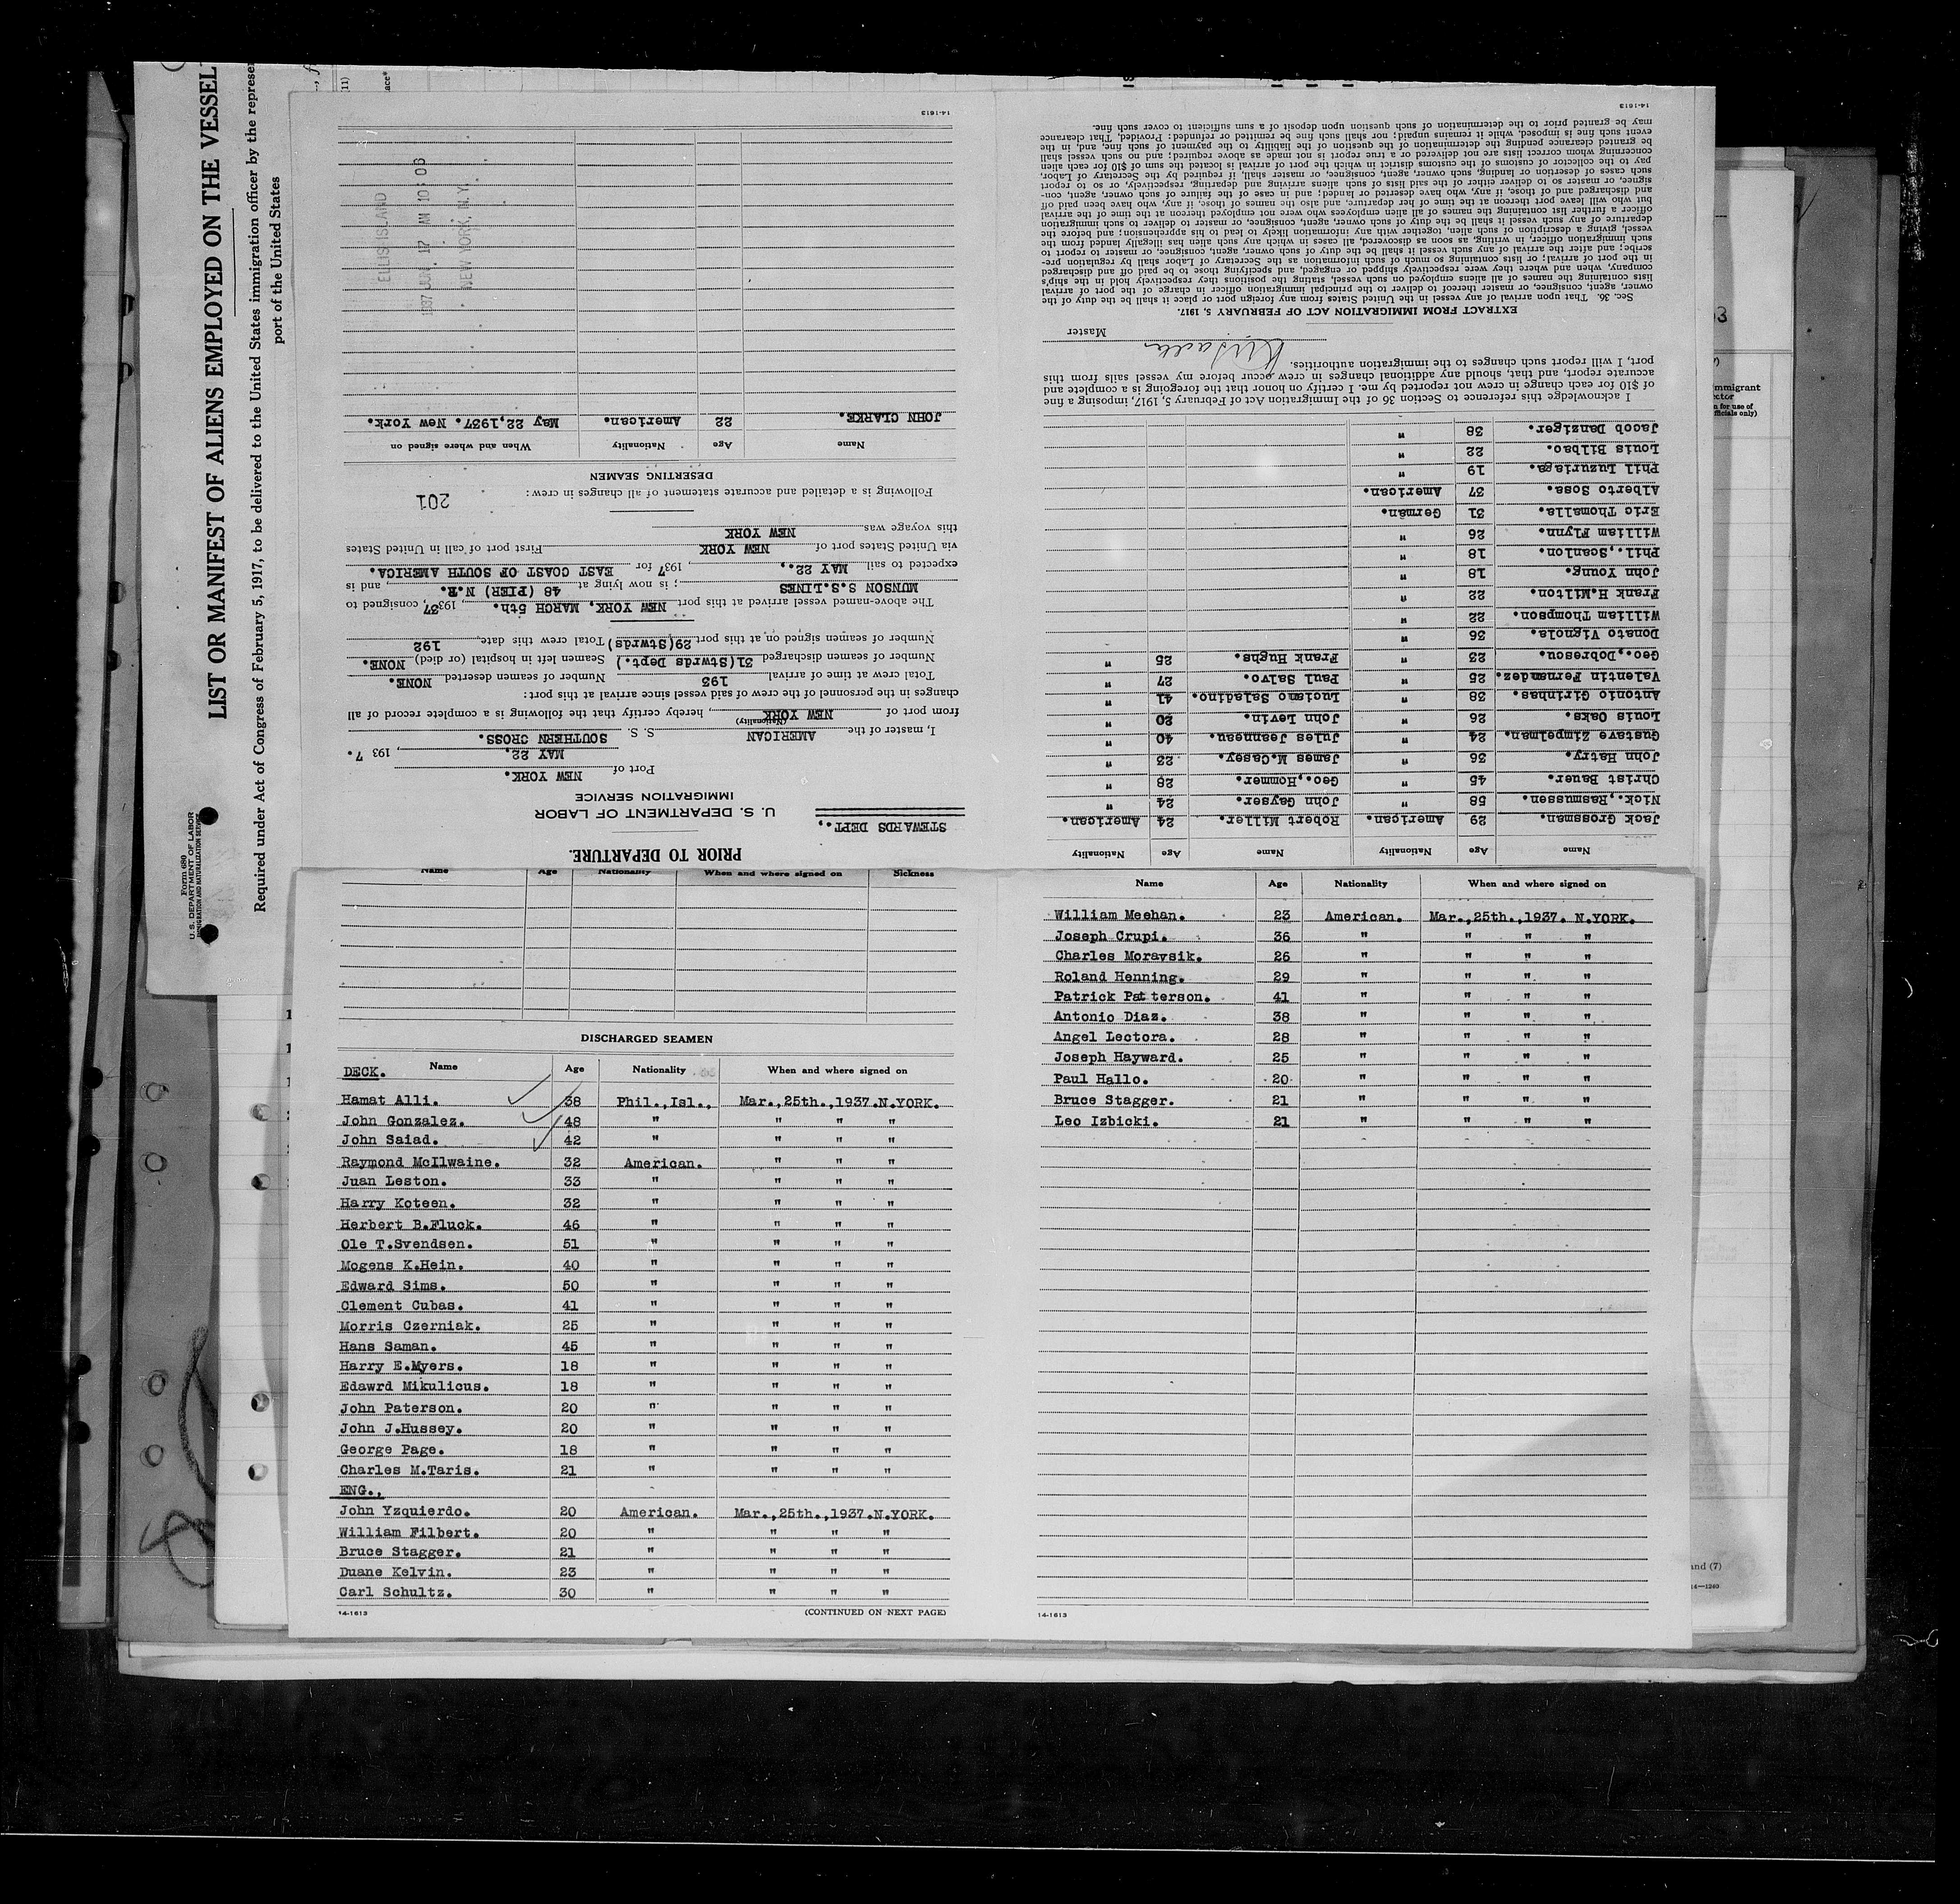 LIST OR MANIFEST OF ALIENS EMPLOYED ON THE VESSEL
Required under Act of Congress of February 5, 1917, to be delivered to the United States immigration officer by the represen
port of the United States
Form 680
U. S. DEPARTMENT OF LABOR
IMMIGRATION AND NATURALIZATION SERVICE
PRIOR TO DEPARTURE.
STEWARDS DEPT.,
U. S. DEPARTMENT OF LABOR
IMMIGRATION SERVICE
Port of NEW YORK.
MAY 22, 1937.
I, master of the AMERICAN S. S. SOUTHERN CROSS.
(Nationality)
from port of NEW YORK, hereby certify that the following is a complete record of all
changes in the personnel of the crew of said vessel since arrival at this port:
Total crew at time of arrival 193 Number of seamen deserted NONE.
Number of seamen discharged 31(Stwrds Dept.) Seamen left in hospital (or died) NONE.
Number of seamen signed on at this port 29(Stwrds) Total crew this date, 192
The above-named vessel arrived at this port NEW YORK, MARCH 5th., 1937, consigned to
MUNSON S.S.LINES; is now lying at 48 (PIER) N.R., and is
expected to sail MAY 22., 1937 for EAST COAST OF SOUTH AMERICA.
via United States port of NEW YORK First port of call in United States
this voyage was NEW YORK
Following is a detailed and accurate statement of all changes in crew:
201
DESERTING SEAMEN
Name Age Nationality When and where signed on
JOHN CLARKE. 22 American. May 22,1937. New York.
ELLIS ISLAND
1937 JUN 17 AM 10:06
NEW YORK, N.Y.
14-1613
Name Age Nationality Name Age Nationality
Jack Grossman. 29 American. Robert Miller. 24 American.
Nick.,Rasmussen. 58 " John Gayser. 24 "
Christ Bauer. 45 " Geo.,Hommer. 28 "
John Hatry. 36 " James M.Casey. 23 "
Gustave Zimpelman. 24 " Jules Jeanneau. 40 "
Louis Oaks. 26 " John Levin. 20 "
Antonio Girinhas. 38 " Luciano Saladino. 41 "
Valentin Fernandez. 25 " Paul Salvo. 27 "
Geo.,Dobrescu. 23 " Frank Hughs. 25 "
Donato Vignola. 36 "
William Thompson. 22 "
Frank H.Milton. 22 "
John Young. 18 "
Phil.,Scanlon. 18 "
William Flynn. 26 "
Eric Thomalla. 31 German.
Alberto Sosa. 37 American.
Phil Luzuriaga. 19 "
Louis Bilbao. 22 "
Jacob Danziger. 38 "
I acknowledge this reference to Section 36 of the Immigration Act of February 5, 1917, imposing a fine
of $10 for each change in crew not reported by me. I certify on honor that the foregoing is a complete and
accurate report, and that, should any additional changes in crew occur before my vessel sails from this
port, I will report such changes to the immigration authorities.
Master
EXTRACT FROM IMMIGRATION ACT OF FEBRUARY 5, 1917.
Sec. 36. That upon arrival of any vessel in the United States from any foreign port or place it shall be the duty of the
owner, agent, consignee, or master thereof to deliver to the principal immigration officer in charge of the port of arrival
lists containing the names of all aliens employed on such vessel, stating the positions they respectively hold in the ship's
company, when and where they were respectively shipped or engaged, and specifying those to be paid off and discharged
in the port of arrival; or lists containing so much of such information as the Secretary of Labor shall by regulation pre-
scribe; and after the arrival of any such vessel it shall be the duty of such owner, agent, consignee, or master to report to
such immigration officer, in writing, as soon as discovered, all cases in which any such alien has illegally landed from the
vessel, giving a description of such alien, together with any information likely to lead to his apprehension; and before the
departure of any such vessel it shall be the duty of such owner, agent, consignee, or master to deliver to such immigration
officer a further list containing the names of all alien employees who were not employed thereon at the time of the arrival
but who will leave port thereon at the time of her departure, and also the names of those, if any, who have been paid off
and discharged and of those, if any, who have deserted or landed; and in case of the failure of such owner, agent, con-
signee, or master so to deliver either of the said lists of such aliens arriving and departing, respectively, or so to report
such cases of desertion or landing, such owner, agent, consignee, or master shall, if required by the Secretary of Labor,
pay to the collector of customs of the customs district in which the port of arrival is located the sum of $10 for each alien
concerning whom correct lists are not delivered or a true report is not made as above required; and no such vessel shall
be granted clearance pending the determination of the question of the liability to the payment of such fine, and, in the
event such fine is imposed, while it remains unpaid; nor shall such fine be remitted or refunded: Provided, That clearance
may be granted prior to the determination of such question upon deposit of a sum sufficient to cover such fine.
14-1613
Name Age Nationality When and where signed on Sickness
DISCHARGED SEAMEN
DECK. Name Age Nationality When and where signed on
Hamat Alli. 38 Phil.,Isl., Mar.,25th.,1937.N.YORK.
John Gonzalez. 48 " " " "
John Saiad. 42 " " " "
Raymond McIlwaine. 32 American. " " "
Juan Leston. 33 " " " "
Harry Koteen. 32 " " " "
Herbert B.Fluck. 46 " " " "
Ole T.Svendsen. 51 " " " "
Mogens K.Hein. 40 " " " "
Edward Sims. 50 " " " "
Clement Cubas. 41 " " " "
Morris Czerniak. 25 " " " "
Hans Saman. 45 " " " "
Harry E.Myers. 18 " " " "
Edawrd Mikulicus. 18 " " " "
John Paterson. 20 " " " "
John J.Hussey. 20 " " " "
George Page. 18 " " " "
Charles M.Taris. 21 " " " "
ENG.,
John Yzquierdo. 20 American. Mar.,25th.,1937.N.YORK.
William Filbert. 20 " " " "
Bruce Stagger. 21 " " " "
Duane Kelvin. 23 " " " "
Carl Schultz. 30 " " " "
14-1613 (CONTINUED ON NEXT PAGE)
Name Age Nationality When and where signed on
William Meehan. 23 American. Mar.,25th.,1937. N.YORK.
Joseph Crupi. 36 " " " "
Charles Moravsik. 26 " " " "
Roland Henning. 29 " " " "
Patrick Patterson. 41 " " " "
Antonio Diaz. 38 " " " "
Angel Lectora. 28 " " " "
Joseph Hayward. 25 " " " "
Paul Hallo. 20 " " " "
Bruce Stagger. 21 " " " "
Leo Izbicki. 21 " " " "
14-1613
and (7)
14-1240